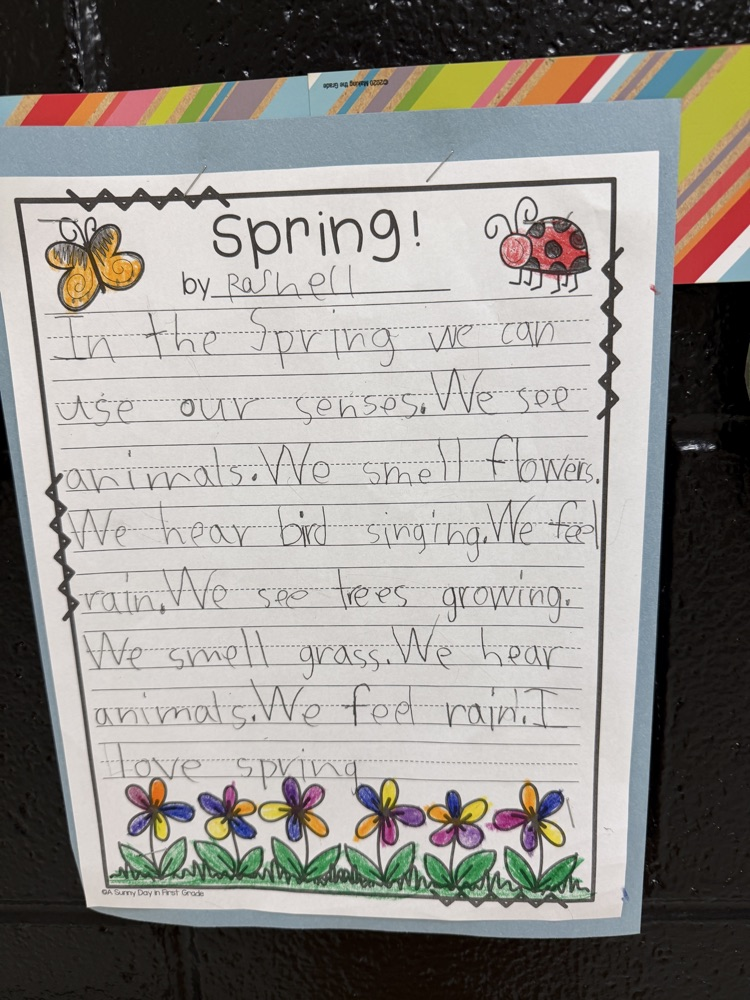 ©2020 Making the Grade
Spring!
by Rashell
In the Spring we can
use our senses. We see
animals. We smell flowers.
We hear bird singing. We feel
rain. We see trees growing.
We smell grass. We hear
animals. We feel rain. I
love spring
©A Sunny Day in First Grade